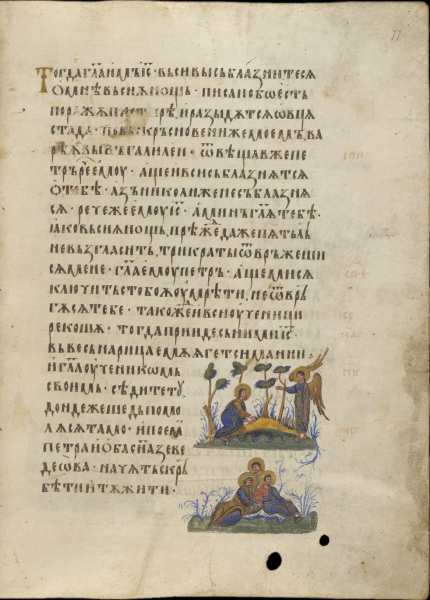 Тогда гл҃а имъ і҃с · вьси вы съблазните сѧ
о мнѣ вь сиѫ нощь · писано бо єсть
поражѫ пастырѣ, и разыдѫт сѧ ѡвцѧ
стада · по въскръсновени же моемъ, ва
рѣѫ вы въ галилеи · ѿвѣщав же пе
тръ рече емоу · аще и вьси съблазнѧт сѧ
о тебѣ · азъ николиже не съблазнѧ
сѧ · рече же емоу і҃с · аминь гл҃ѧ тебѣ ·
ꙗко вь сиѫ нощь, прѣжде даже пѣтьль
не възгласить, три краты ѿвръжеши
сѧ мене · гл҃а емоу петръ · аще ми сѧ
ключить с тобоѫ оумрѣти, не ѿвръ
гѫ сѧ тебе · такоже и вси оученици
рекошѧ · тогда прииде сь ними і҃с
вь весь нарицаемѫѧ гетсимании
и гл҃а оученикомь
своимь · сѣдите тоу
дондеже шьд помо
лѧ сѧ тамо · и поемь
петра и оба сн҃а зеве
деѡва · начѧть скръ
бѣти и тѫжити ·
77